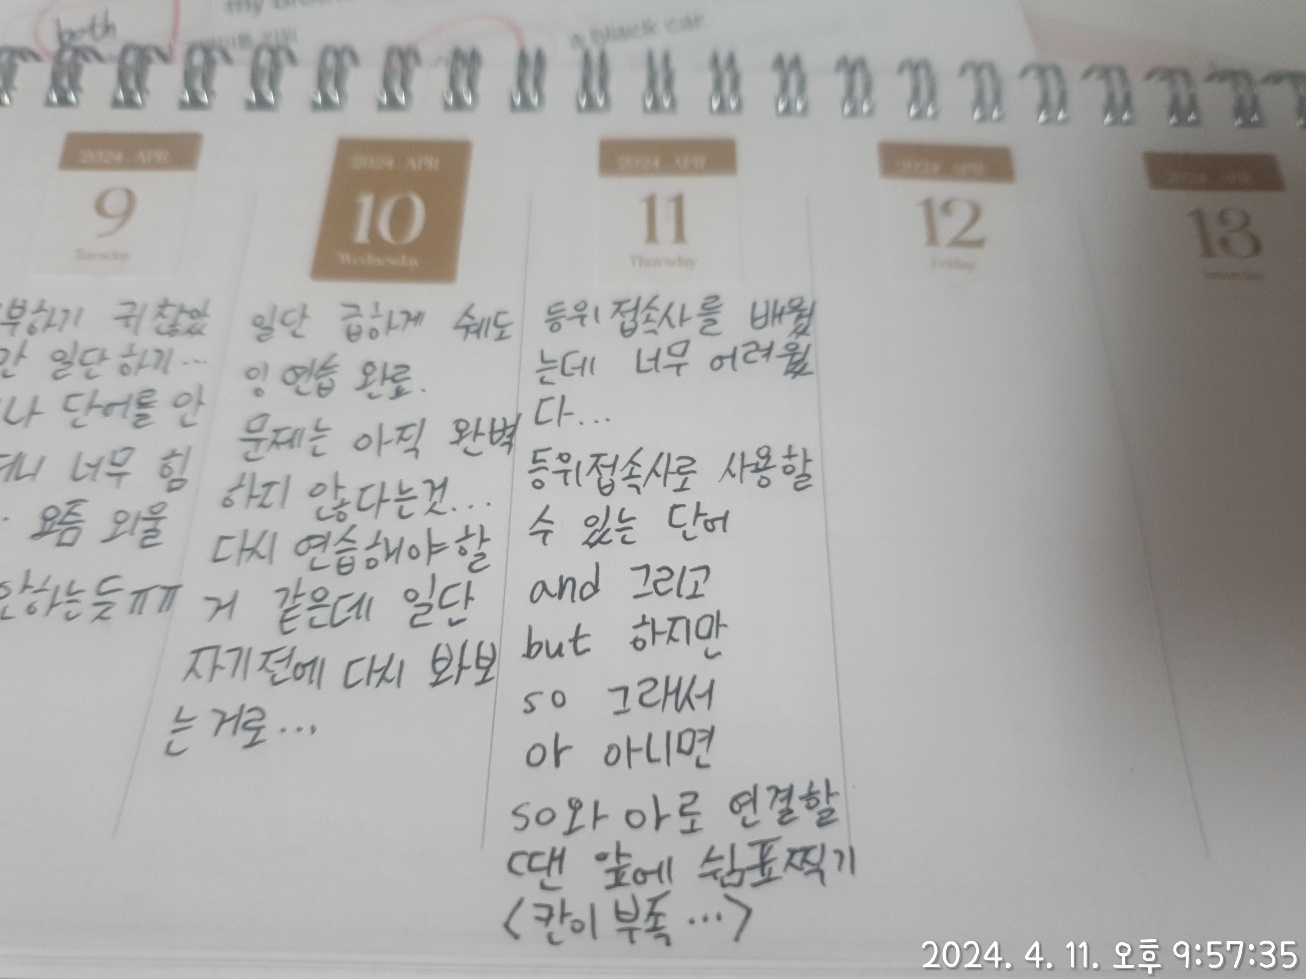 both
my
a black car
2024 . APR
9
Tuesday
부하기 귀찮았
일단하기...
나 단어를 안
너무 힘
요즘 외울
안하는듯ㅠㅠ
2024 . APR
10
Wednesday
일단 급하게 쉐도
잉 연습 완료.
문제는 아직 완벽
하지 않다는것...
다시 연습해야할
거 같은데 일단
자기전에 다시 봐보
는 거로...
2024 . APR
11
Thursday
등위접속사를 배웠
는데 너무 어려웠
다...
등위접속사로 사용할
수 있는 단어
and 그리고
but 하지만
so 그래서
or 아니면
so와 or로 연결할
땐 앞에 쉼표찍기
<칸이 부족...>
2024 . APR
12
Friday
2024 . APR
13
Saturday
2024. 4. 11. 오후 9:57:35